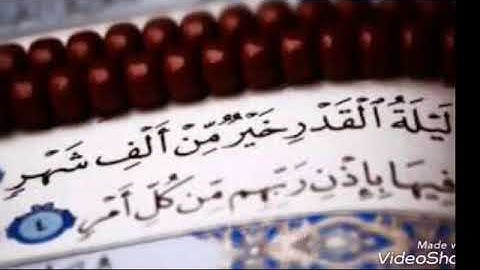 لَيْلَةُ ٱلْقَدْرِ خَيْرٌ مِّنْ أَلْفِ شَهْرٍ
فِيهَا بِإِذْنِ رَبِّهِم مِّن كُلِّ أَمْرٍ ٤
Made w
VideoSho